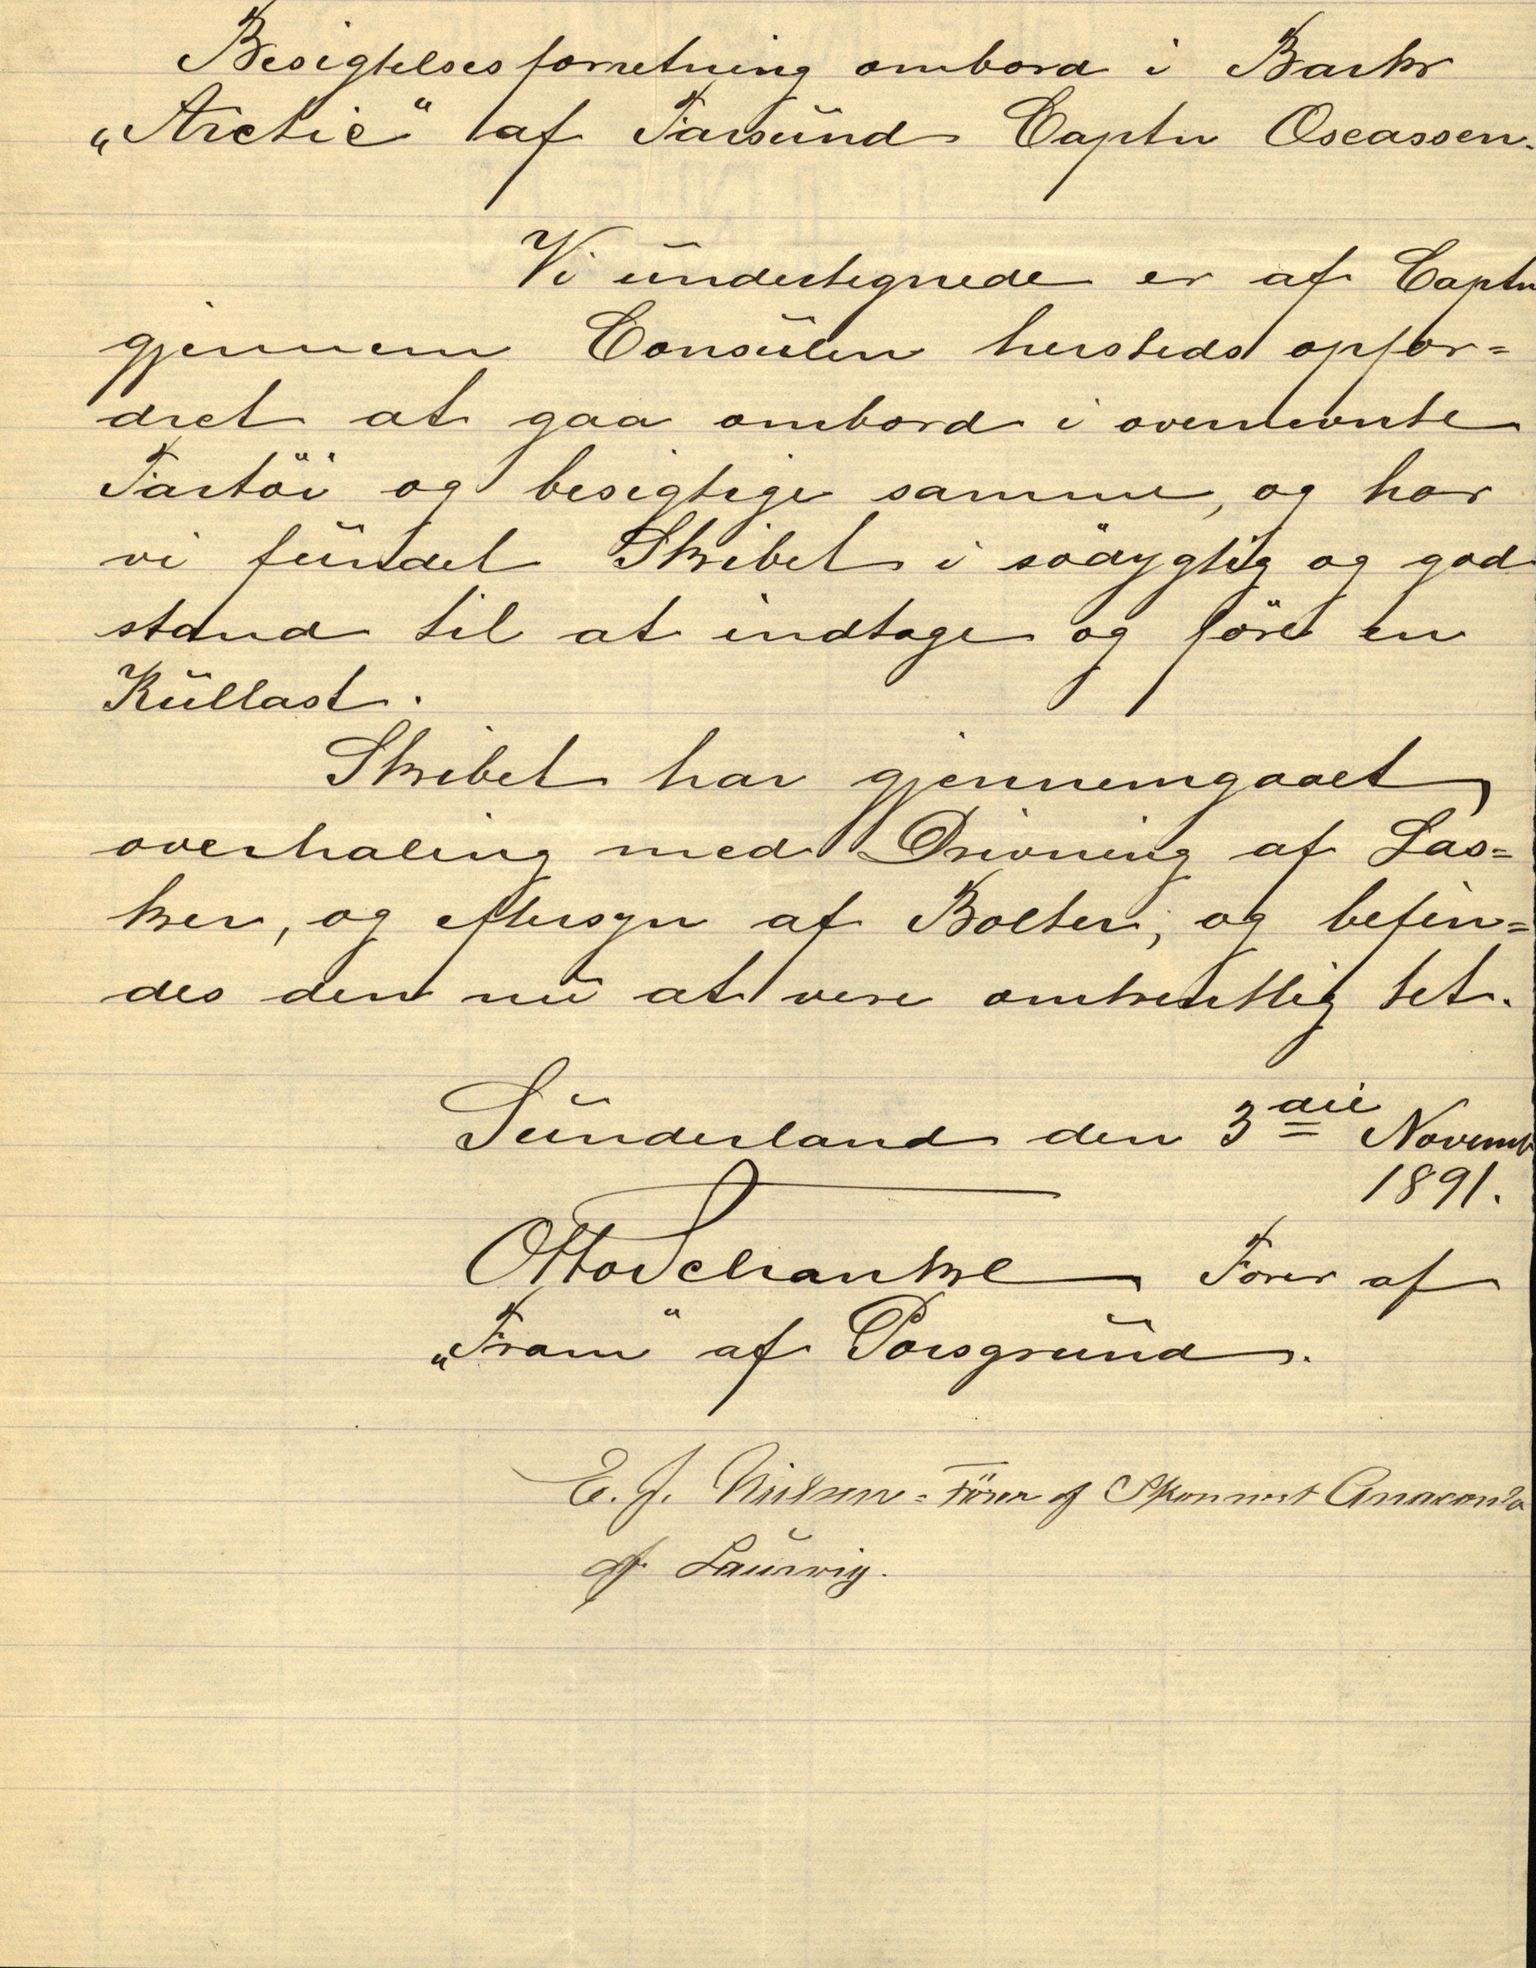 Besigtelsesforretning ombord i Barkr
„Arctic“ af Farsund Captn Oseassen.
Vi undertegnede er af Captn
gjennem Consulen hersteds opfor=
dret at gaa ombord i ovennevnte
Fartöi og besigtige samme, og har
vi fundet Skibet i södygtig og god
stand til at indtage og före en
Kullast.
Skibet har gjennemgaaet
overhaling med Drivning af Las=
ker, og eftersyn af Bolter, og befin=
des den nu at vere omkentlig tet.
Sunderland den 3die Novemb
1891.
Otto Schanke Forer af
„Fram“ af Porsgrund.
E. J. Nielsen = Förer af Skonnert Anaconda
af Laurvig.